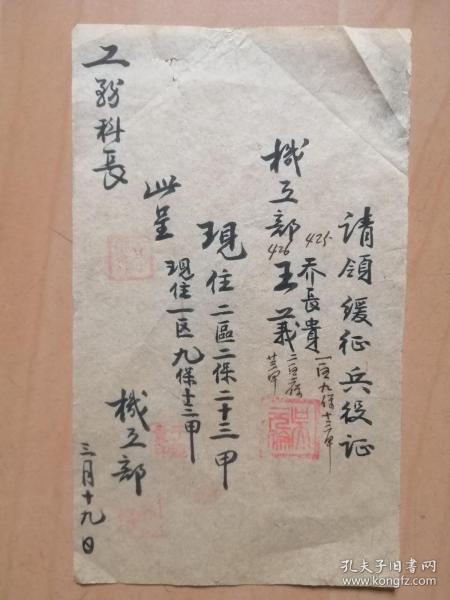 请领缓征兵役证
機工部 425 乔長貴 一区九保十二甲
426 王義 二区二保廿三甲
現住二區二保二十三甲
現住一区九保十二甲
此呈
工務科長
機工部
三月十九日
孔夫子旧书网
www.kongfz.com